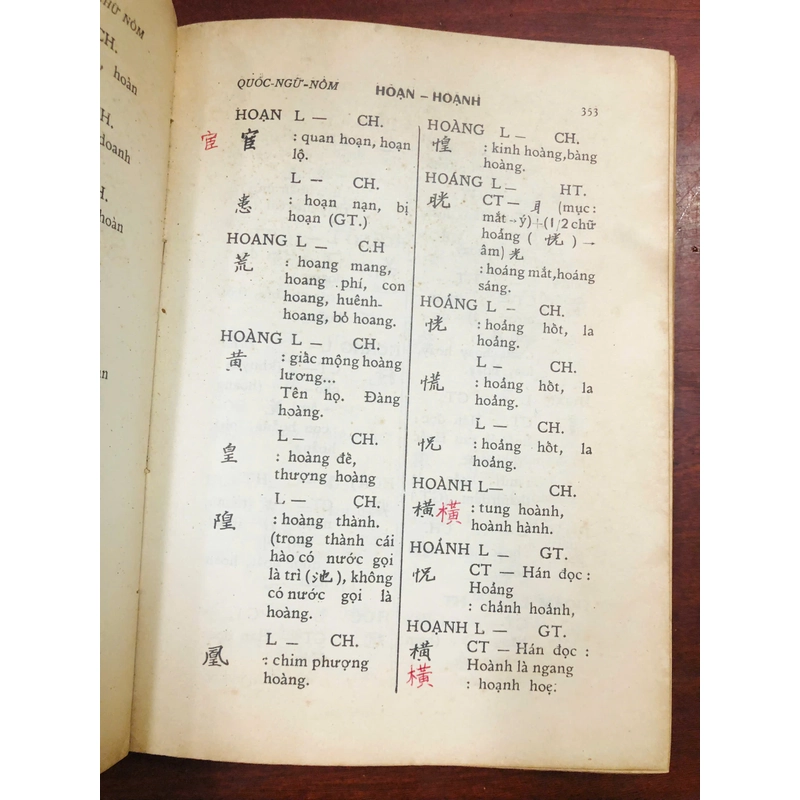 CHỮ NÔM
CH.
hoàn
H.
doanh
CH.
hoàn
QUỐC-NGỮ-NÔM
HOẠN - HOẠNH
353
HOẠN L — CH.
宦 宦 : quan hoạn, hoạn
lộ.
L — CH.
患 : hoạn nạn, bị
hoạn (GT.)
HOANG L — C.H
荒 : hoang mang,
hoang phí, con
hoang, huênh-
hoang, bỏ hoang.
HOÀNG L — CH.
黄 : giấc mộng hoàng
lương...
Tên họ. Đàng
hoàng.
L — CH.
皇 : hoàng đế,
thượng hoàng
L — CH.
隍 : hoàng thành.
(trong thành cái
hào có nước gọi
là trì (池), không
có nước gọi là
hoàng.
L — CH.
凰 : chim phượng
hoàng.
HOÀNG L — CH.
惶 : kinh hoàng, bàng
hoàng.
HOÁNG L — HT.
晄 CT — 目 (mục :
mắt → ý)+(1/2 chữ
hoảng ( 恍 ) →
âm) 光
: hoáng mắt, hoáng
sáng.
HOẢNG L — CH.
恍 : hoảng hốt, la
hoảng.
L — CH.
慌 : hoảng hốt, la
hoảng.
L — CH.
怳 : hoảng hốt, la
hoảng.
HOÀNH L — CH.
横 橫 : tung hoành,
hoành hành.
HOẢNH L — GT.
怳 CT — Hán đọc :
Hoảng
: chảnh hoảnh,
HOẠNH L — GT.
横 CT — Hán đọc :
橫 Hoành là ngang
: hoạnh hoẹ.